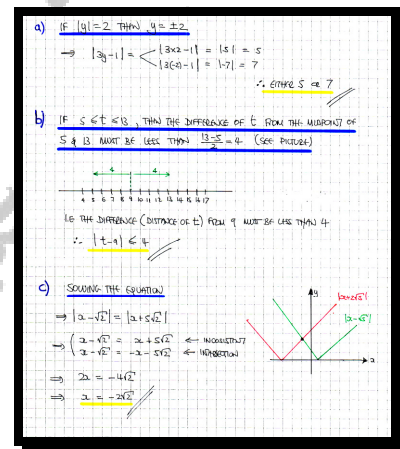 a) IF |y| = 2 THEN y = ±2
⇒ |3y-1| = |3×2-1| = |5| = 5
|3(-2)-1| = |-7| = 7
∴ EITHER 5 OR 7
b) IF 5 ≤ t ≤ 13, THEN THE DIFFERENCE OF t FROM THE MIDPOINT OF
5 & 13 MUST BE LESS THAN (13-5)/2 = 4 (SEE PICTURE)
4 4
4 5 6 7 8 9 10 11 12 13 14 15 16 17
I.E THE DIFFERENCE (DISTANCE OF t) FROM 9 MUST BE LESS THAN 4
∴ |t-9| ≤ 4
c) SOLVING THE EQUATION
⇒ |x-√2| = |x+5√2|
⇒ x-√2 = x+5√2 ← INCONSISTENT
x-√2 = -x-5√2 ← INTERSECTION
⇒ 2x = -4√2
⇒ x = -2√2
y
x